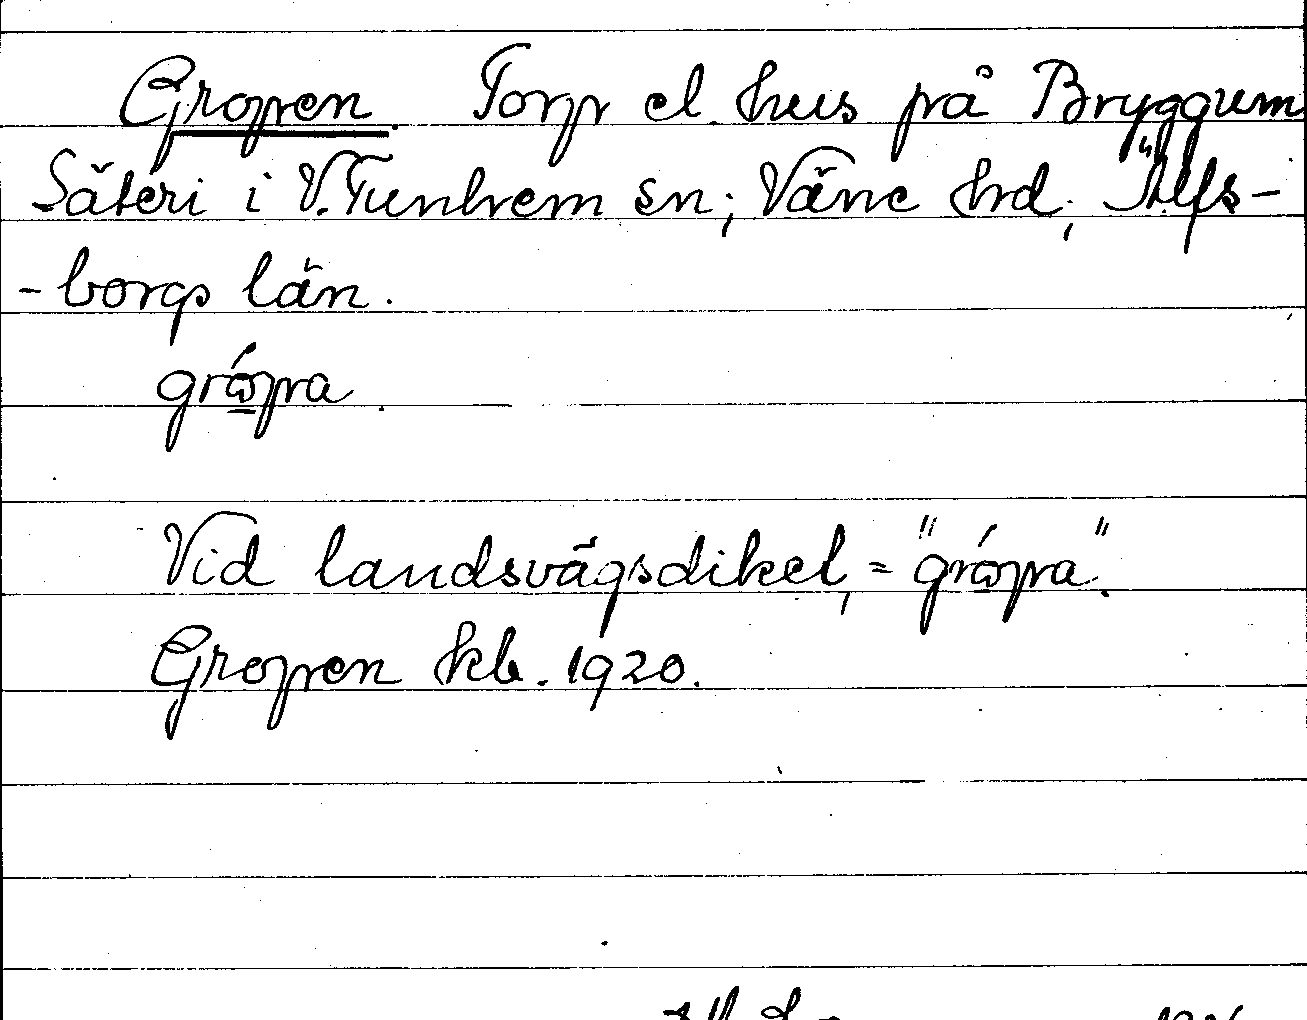 Gropen. Torp el. hus på Bryggum
Säteri i V. Tunhem sn; Väne hrd; Älfs-
-borgs län.
gró̱pa.
Vid landsvägsdiket, = "gró̱pa".
Gropen kb. 1920.